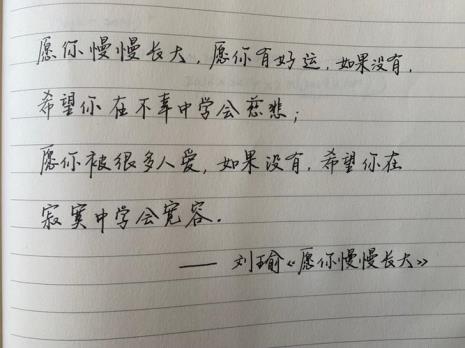 愿你慢慢长大，愿你有好运，如果没有，
希望你在不幸中学会慈悲；
愿你被很多人爱，如果没有，希望你在
寂寞中学会宽容．
—— 刘瑜《愿你慢慢长大》